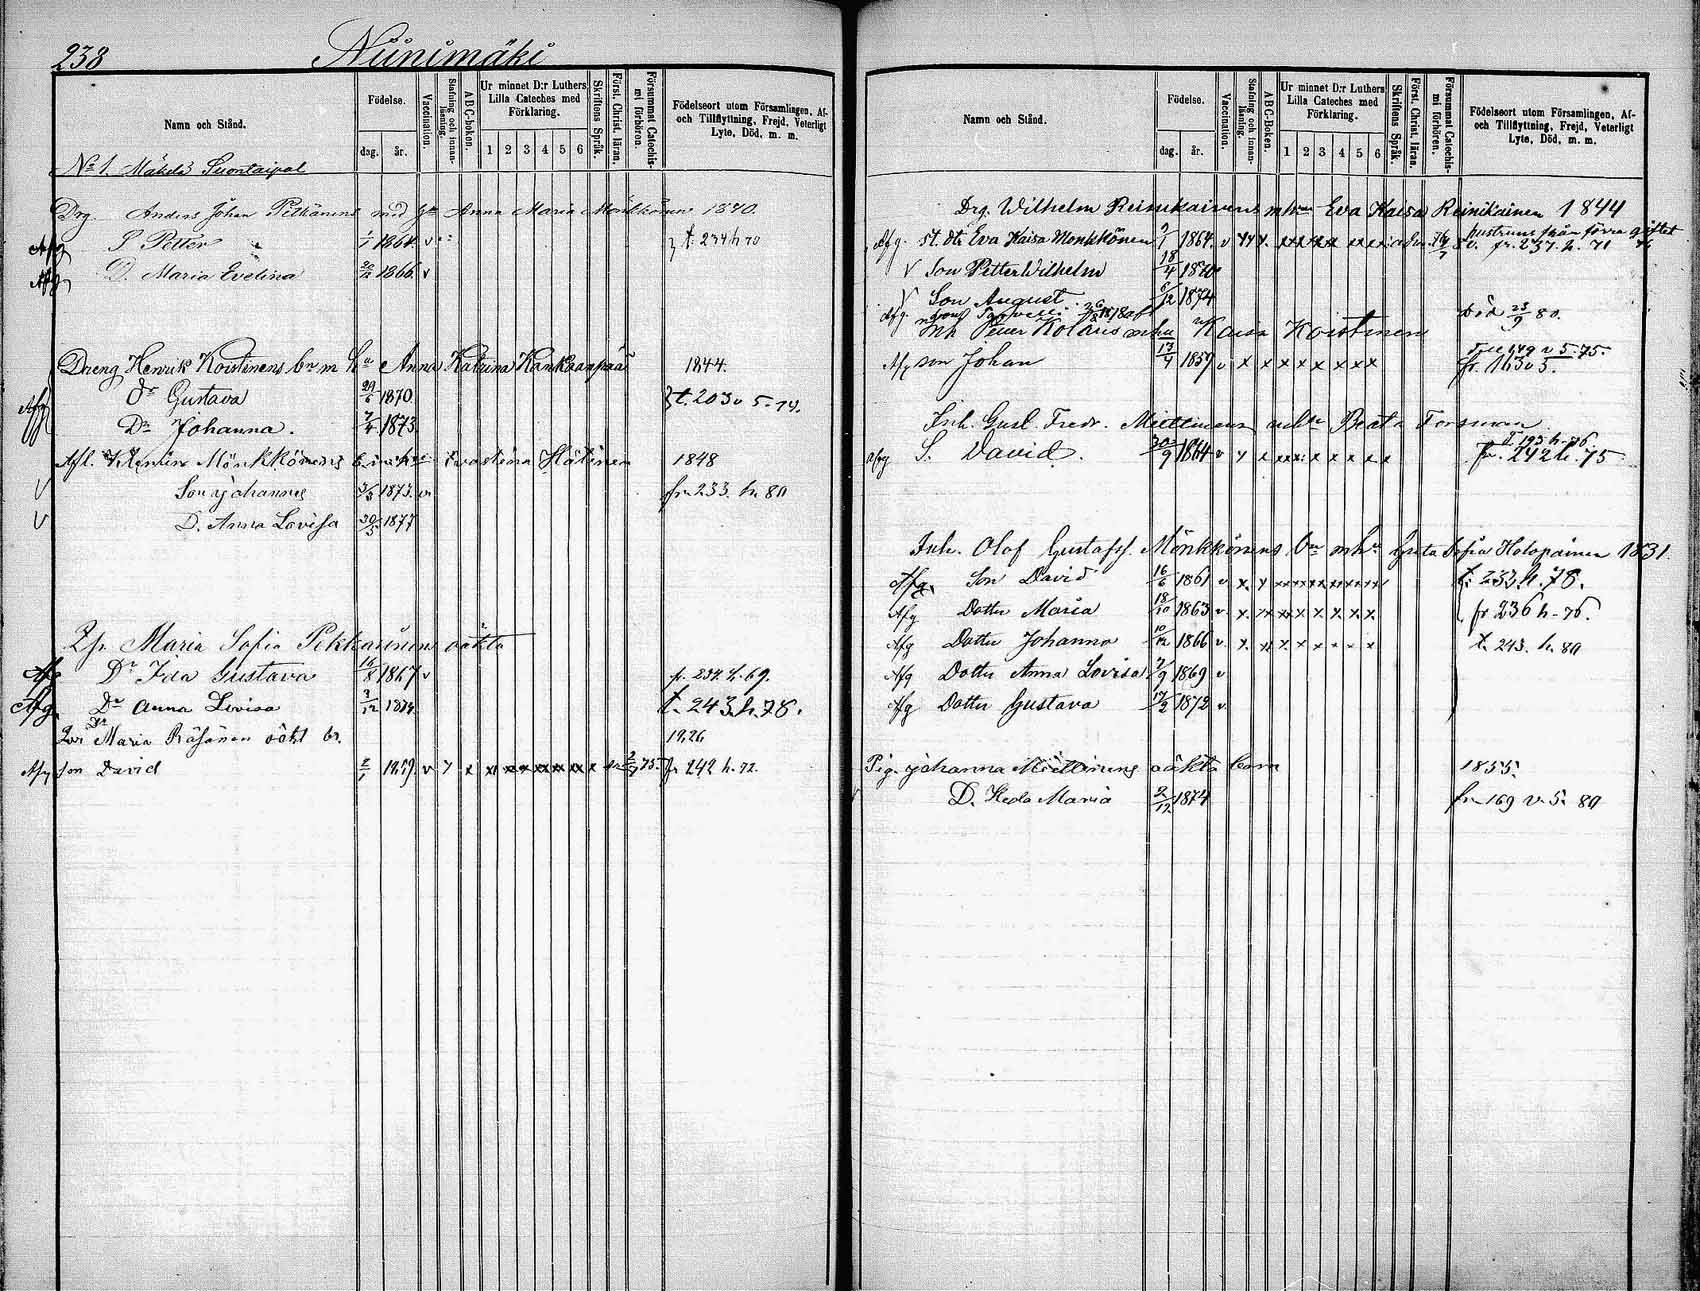 238 Niinimäki
Namn och Stånd.
Födelse.
dag. år.
Vaccination.
Stafning och innanläsning.
A B C-boken.
Ur minnet D:r Luthers Lilla Cateches med Förklaring.
1 2 3 4 5 6
Skriftens Språk.
Först. Christ. läran.
Försummat Catechismi förhören.
Födelseort utom Församlingen, Af- och Tillflyttning, Frejd, Veterligt Lyte, Död, m. m.
No 1. Mäkelä Suontaipal
Drg. Anders Johan Pitkänens med h Anna Maria Mönkkönen 1840.
Afg S Petter 1/1 1864. v t. 234 h 70
Afg D. Maria Evelina 1866. v
Dreng Henrik Koistinens br m hu Anna Katrina Kankaanpää 1844.
Afg Dr Gustava 29/6 1870. t. 203 v 5-74.
Dr Johanna. 1873.
Mönkkönens Hötinen 1848
v Son Johannes 1873. v fr. 233. h. 80
v D. Anna Lovisa 30/3 1877
Maria Sofia Pekkarinens oäkta
Afg Dr Ida Gustava 16/8 1867 v fr. 234 h. 69.
Afg. Dr Anna Lovisa 3/12 1874. t. 243 h. 78.
Maria Räsänen oäkt br. 1826
Afg son David 2/1 1859. v x x x x x x x x 75. fr 242 h. 72.
Namn och Stånd.
Födelse.
dag. år.
Vaccination.
Stafning och innanläsning.
A B C-Boken.
Ur minnet D:r Luthers Lilla Cateches med Förklaring.
1 2 3 4 5 6
Skriftens Språk.
Först. Christ. läran.
Försummat Catechismi förhören.
Födelseort utom Församlingen, Af- och Tillflyttning, Frejd, Veterligt Lyte, Död, m. m.
Drg. Wilhelm Reinikainens m hu Eva Kaisa Reinikainen 1844
hustruns från förra giftet
Afg. st. dtr Eva Kaisa Mönkkönen 1864. v fr. 237. h. 71
v Son Petter Wilhelm 18/4 1870
v Son August 6/12 1874
Afg. död 23/9 80.
Inh Petter Kolaris m hu Kaisa Koistinen
Afg son Johan 13/4 1859 v x x x x x x x x fr. 163 v 5.
Inh. Gust. Fredr. Miettinens m hu Beata Forsman
t. 195 h-76
Afg S. David. 30/9 1864 v x x x x x x x x fr. 242 h. 75
Inh. Olof Gustafss. Mönkkönens bn m hu Greta Sofia Holopainen 1831.
Afg. Son David 16/6 1861 v x x x x x x x x x t. 232 h. 78.
Afg Dotter Maria 18/10 1863 v x x x x x x x x fr 236 h-76.
Afg Dotter Johanna 10/12 1866 v x x x x x x x x t. 243. h. 80
Afg Dotter Anna Lovisa 1869 v
Afg Dotter Gustava 17/2 1872 v
Pig. Johanna Miettinens oäkta barn 1855.
D. Heda Maria 2/12 1874 fr. 169 v. 5. 80